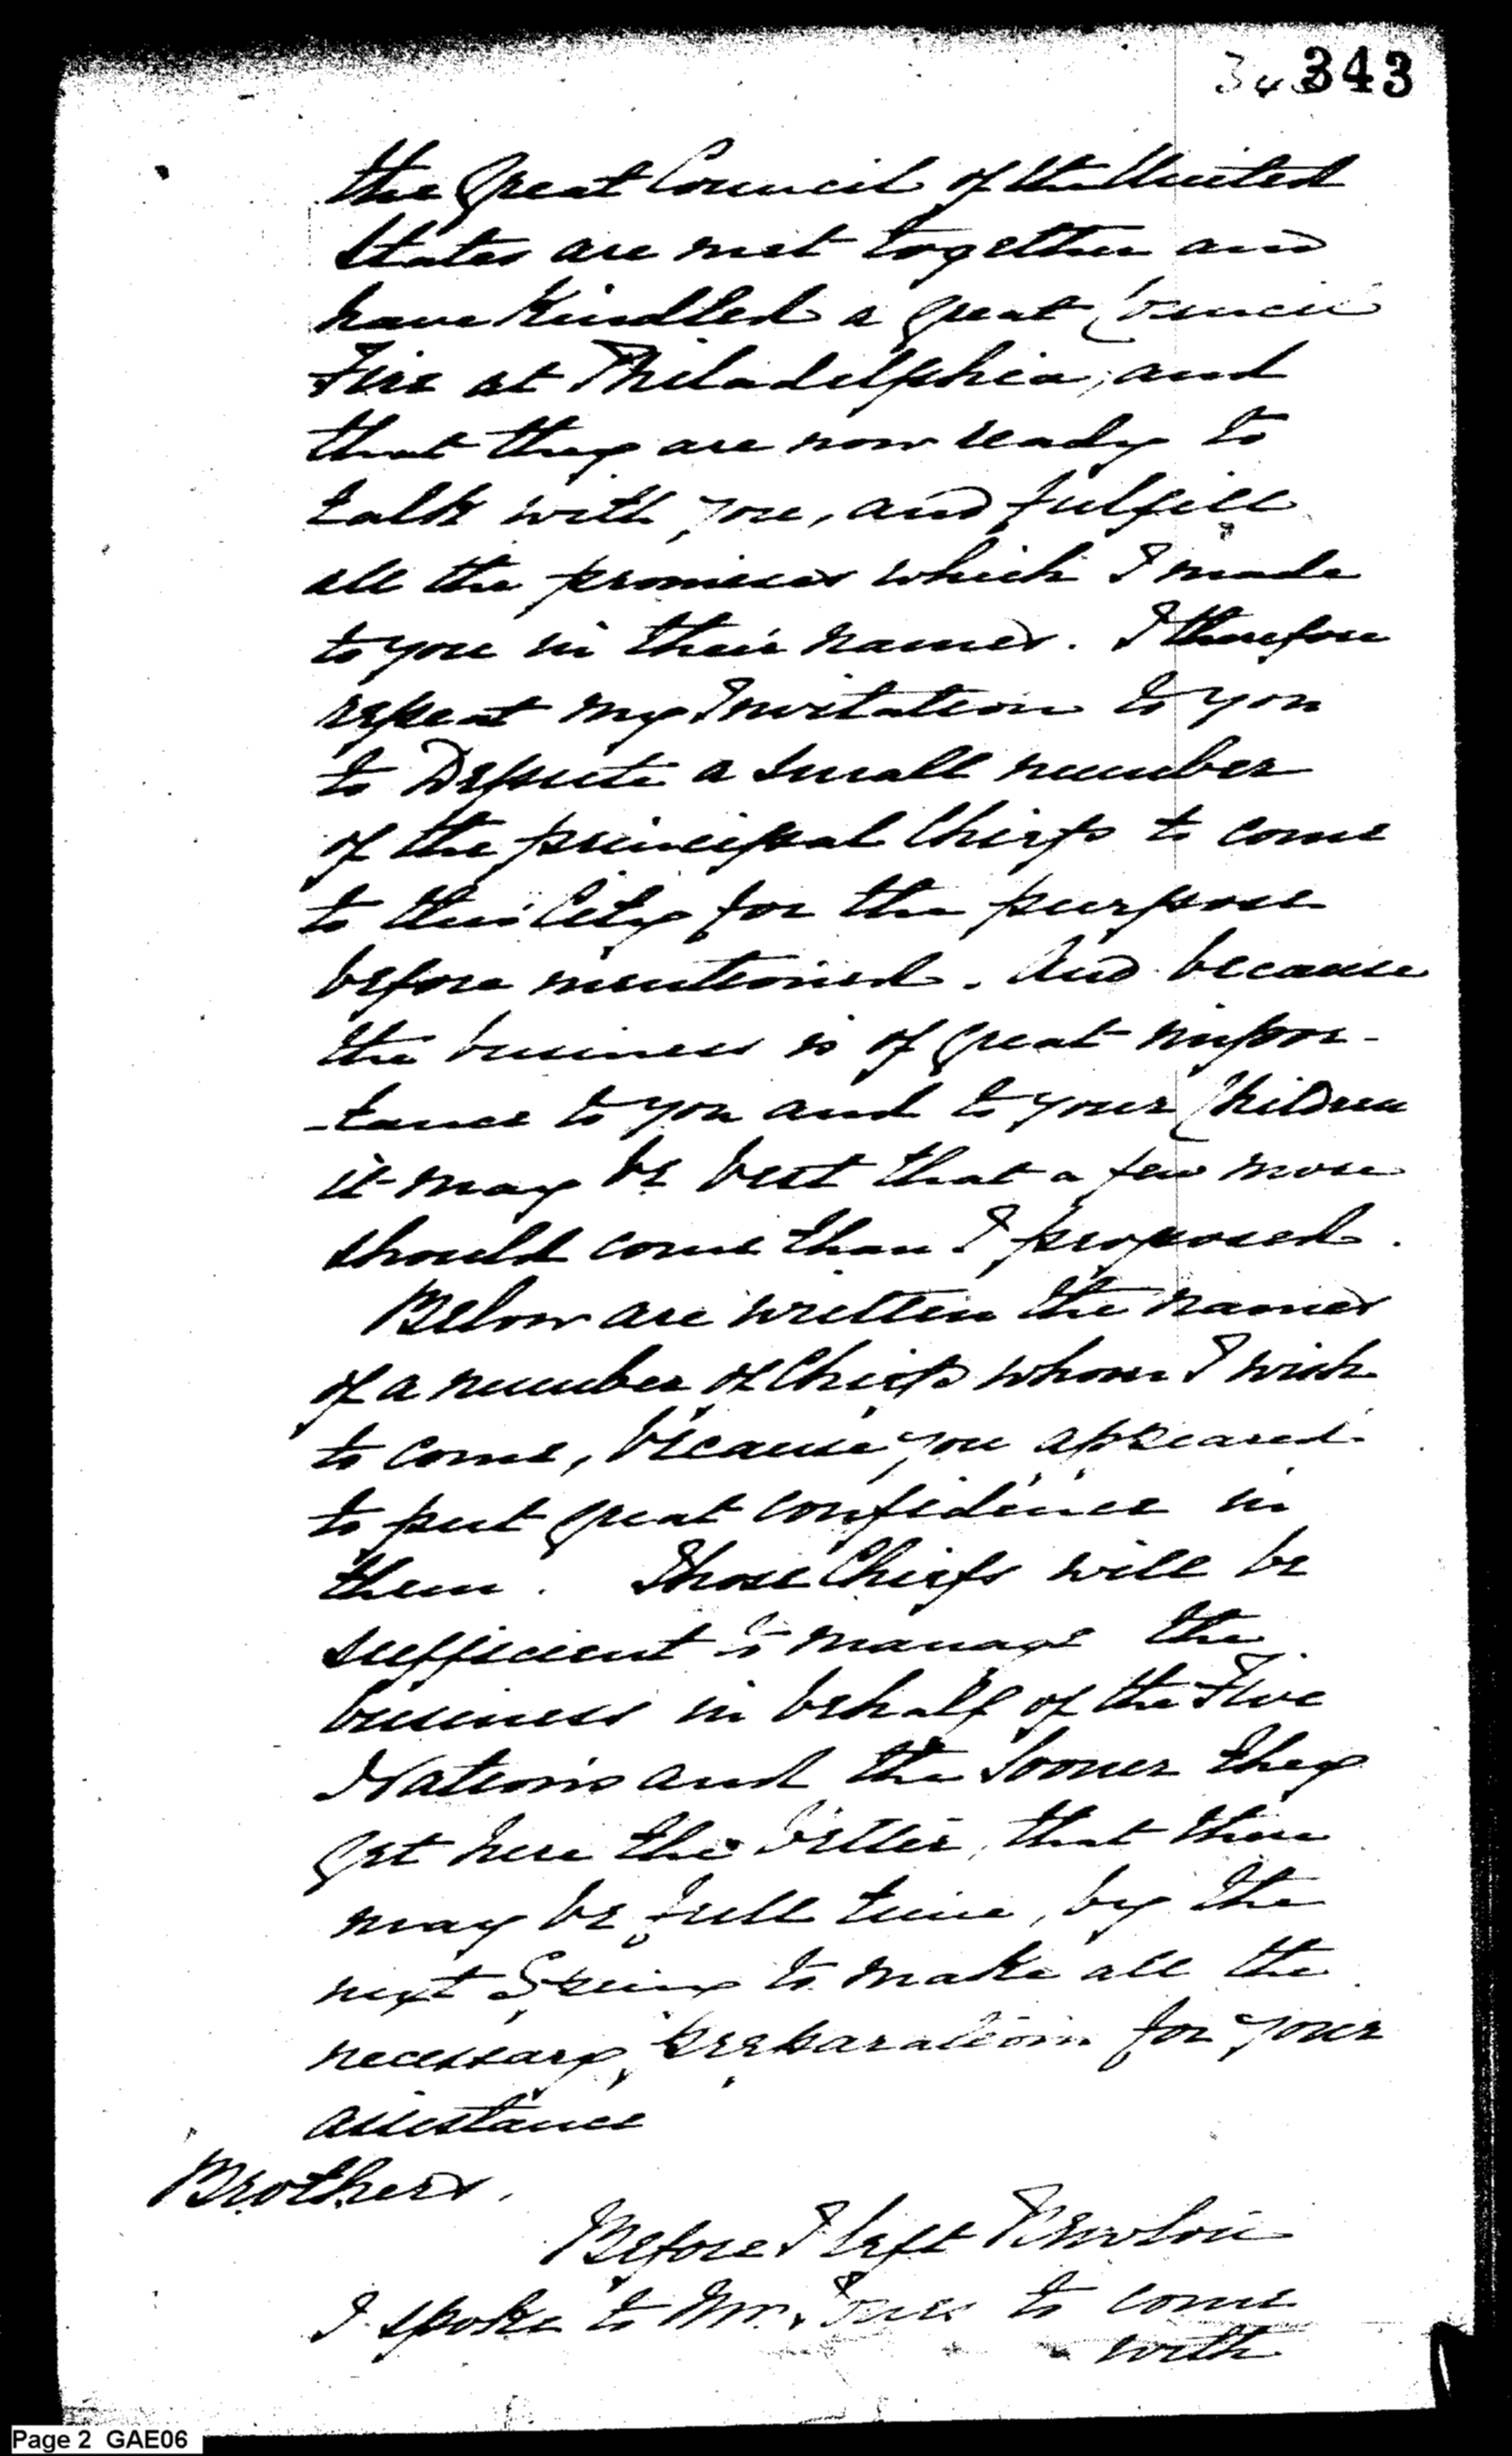 343 343
the Great Council of the United
States are met together and
have Kindled a great Council
Fire at Philadelphia, and
that they are now ready to
talk with you, and fulfill
all the promises which I made
to you in their names. I therefore
repeat my Invitation to you
to Depute a small number
of the principal Chiefs to come
to this City for the purpose
before mentioned. And because
the business is of great impor-
-tance to you and to your Children
it may be best that a few more
should come than I proposed.
Below are written the names
of a number of Chiefs whom I wish
to come, because you appeared
to put great confidence in
them. Those Chiefs will be
sufficient to manage the
business in behalf of the Five
Nations and the Sooner they
get here the better, that there
may be full time, by the
next Spring to make all the
necessary preparations for your
assistance
Brothers,
Before I left
I spoke to Mr. Jones to come
with
Page 2 GAE06